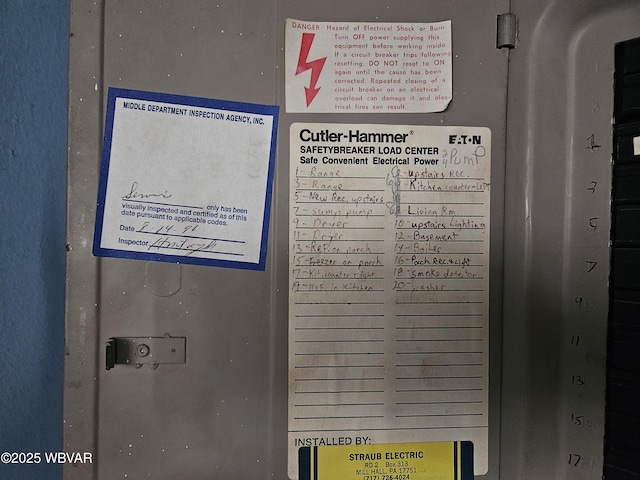 DANGER Hazard of Electrical Shock or Burn
Turn OFF power supplying this
equipment before working inside
If a circuit breaker trips following
resetting, DO NOT reset to ON
again until the cause has been
corrected. Repeated closing of a
circuit breaker on an electrical
overload can damage it and elec
trical fires can result.
MIDDLE DEPARTMENT INSPECTION AGENCY, INC.
only has been
visually inspected and certified as of this
date pursuant to applicable codes.
Date 8-14-96
Inspector
Cutler-Hammer® EATON
SAFETYBREAKER LOAD CENTER
Safe Convenient Electrical Power
Pump
1- Range
3- Range
5- New Rec. upstairs
7- Sump pump
9- Dryer
11- Dryer
13- Ref. on porch
15- Freezer on porch
17- Kit. counter right
19- in Kitchen
upstairs Rec.
Kitchen counter-Left
Living Rm
10- upstairs Lighting
12- Basement
14- Boiler
16- Porch Rec. & Lift
18- smoke detector
20- washer
INSTALLED BY:
STRAUB ELECTRIC
RD 2 Box 313
MILL HALL, PA 17751
(717) 726-4024
1
3
5
7
9
11
13
15
17
©2025 WBVAR